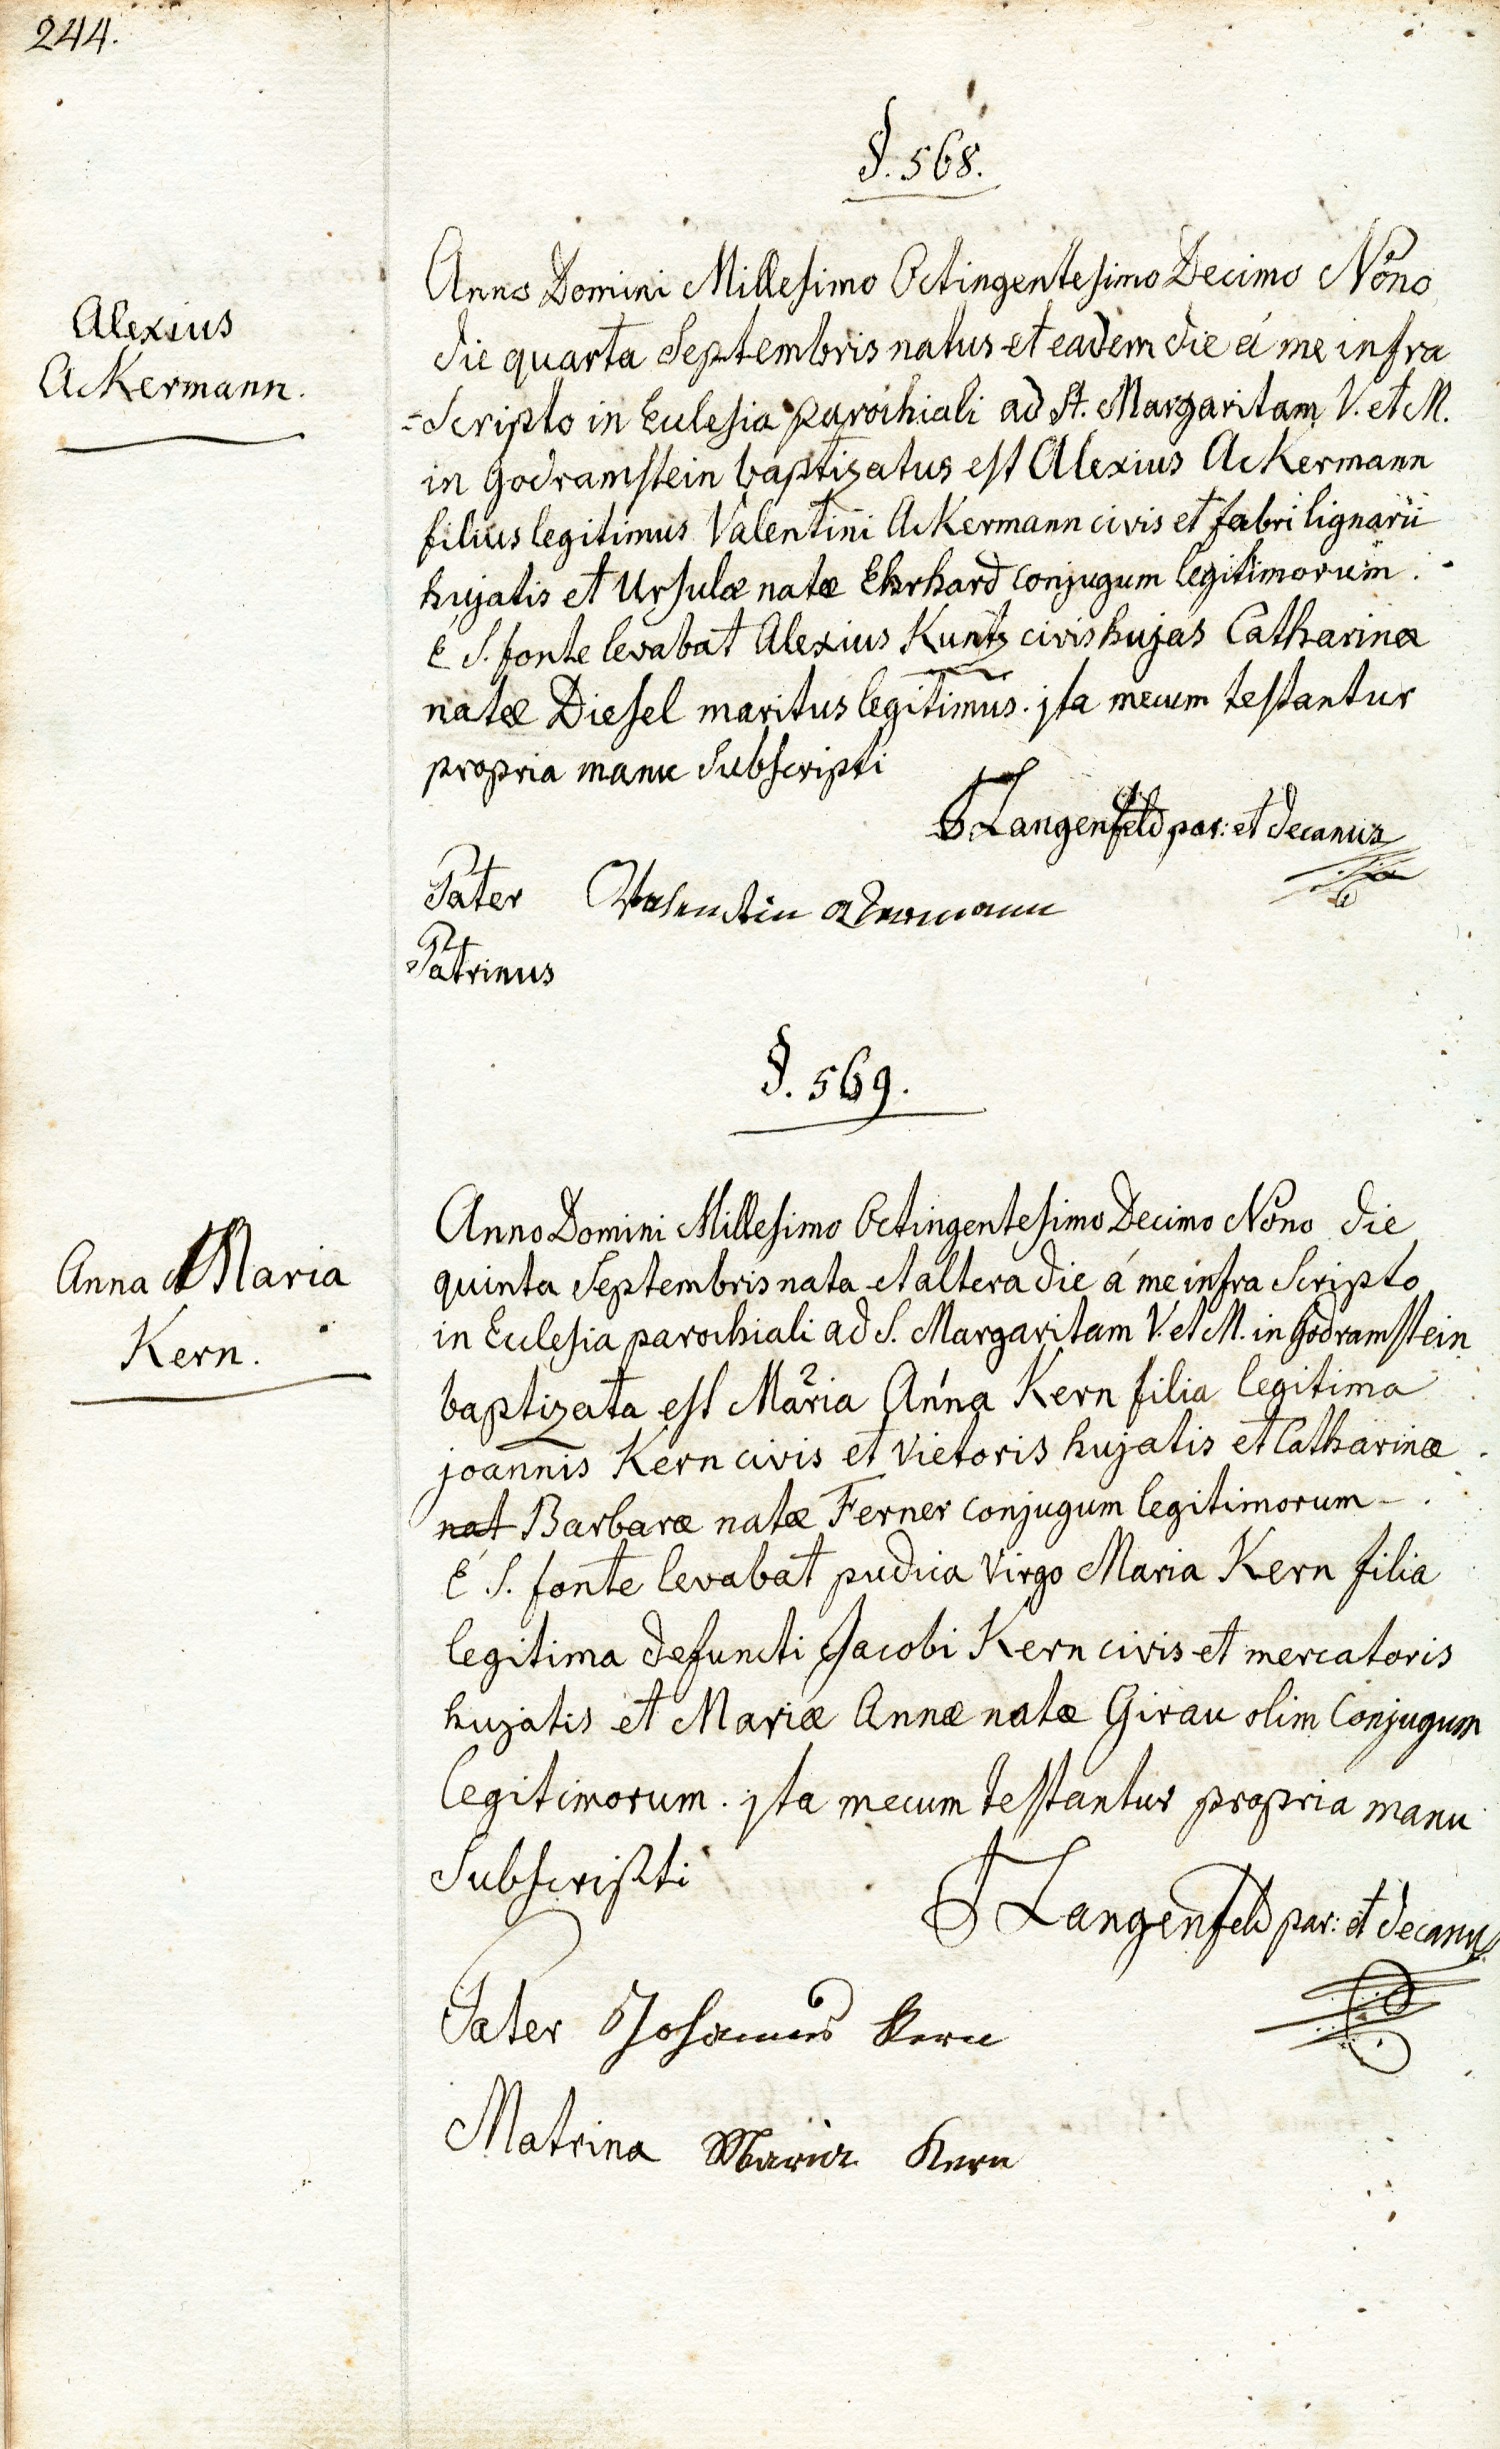 244.
§. 568.
Alexius
Ackermann.
Anno Domini Millesimo Octingentesimo Decimo Nono
die quarta Septembris natus et eadem die á me infra
=Scripto in Ecclesia parochiali ad St. Margaritam V. et M.
in Godramstein baptizatus est Alexius Ackermann
filius legitimus Valentini Ackermann civis et fabri lignarii
hujatis et Ursulæ natæ Ehrhard conjugum legitimorum.
É S. fonte levabat Alexius Kuntz civis hujas Catharinæ
natæ Diesel maritus legitimus. jta mecum testantur
propria manu Subscripti
J Langenfeld par: et decanus
Pater Valendtin Ackermann
Patrinus
§. 569.
Anna Maria
Kern.
Anno Domini Millesimo Octingentesimo Decimo Nono die
quinta Septembris nata et altera die á me infra Scripto
in Ecclesia parochiali ad S. Margaritam V. et M. in Godramstein
baptizata est Maria 2 Anna 1 Kern filia legitima
joannis Kern civis et vietoris hujatis et Catharinæ
nat Barbaræ natæ Ferner conjugum legitimorum - .
É S. fonte levabat pudica virgo Maria Kern filia
legitima defuncti Jacobi Kern civis et mercatoris
hujatis et Mariæ Annæ natæ Girau olim Conjugum
legitimorum. jta mecum testantur propria manu
Subscripti
J Langenfeld par: et decanus
Pater Johannes Kern
Matrina Maria Kern